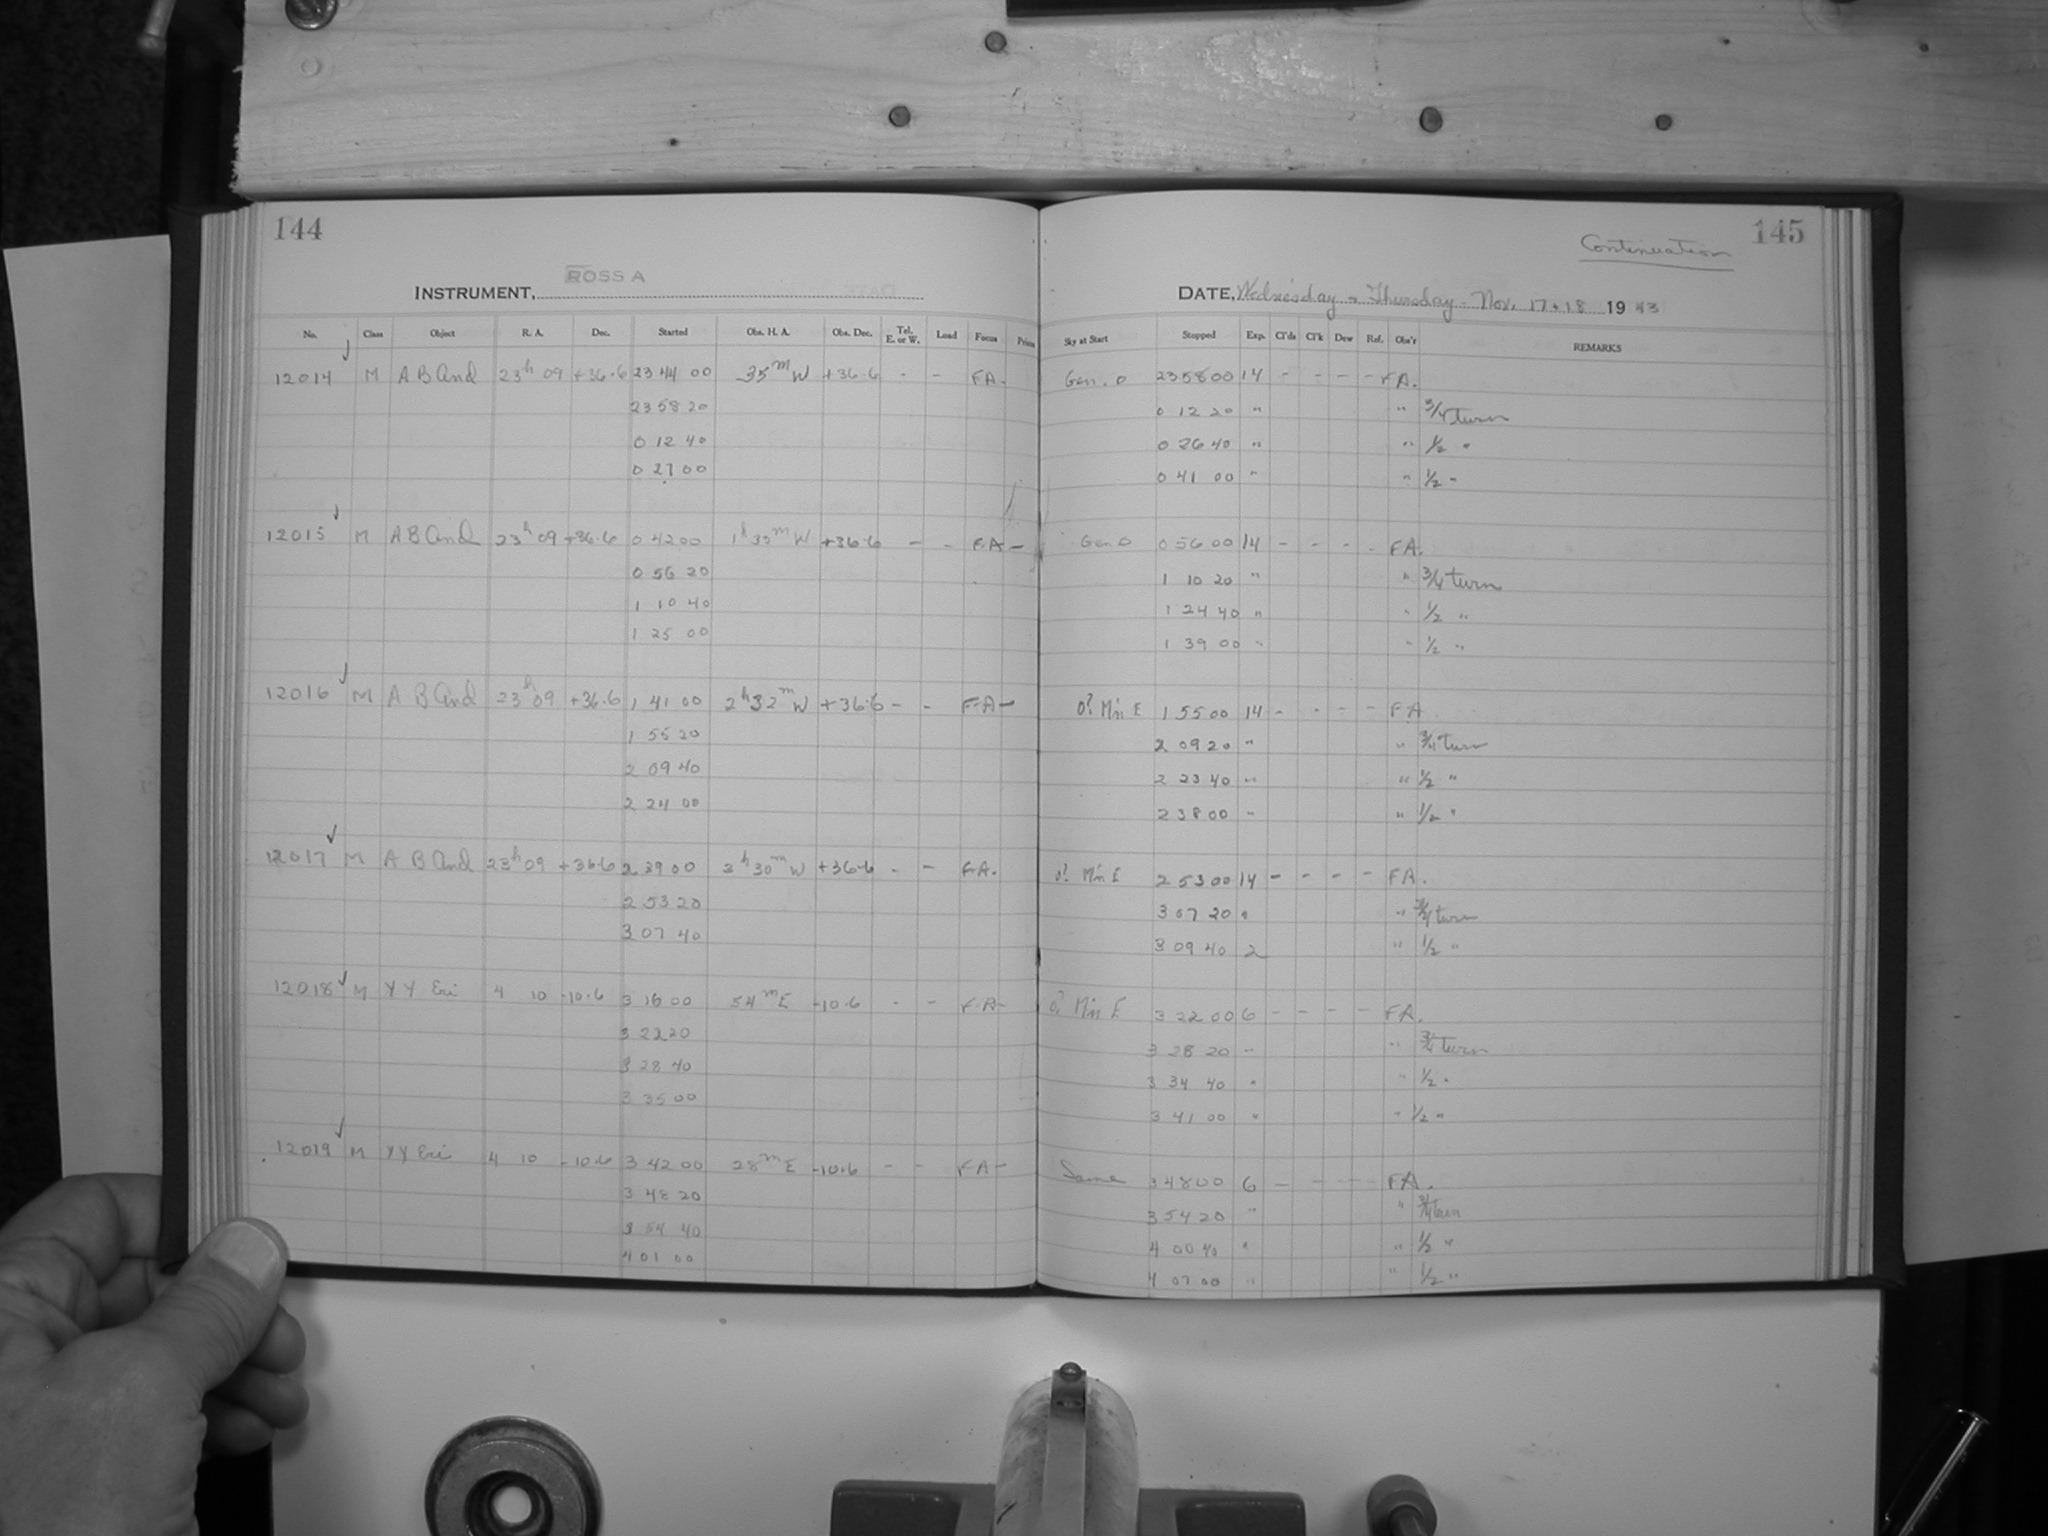 144
ROSS A
INSTRUMENT,
No. Class Object R. A. Dec. Started Obs. H. A. Obs. Dec. Tel. E. or W. Load Focus Prism
12014 M A B And 23h 09 +36.6 23 44 00 35m W +36.6 - - FA.
23 58 20
0 12 40
0 27 00
12015 M A B And 23h 09 +36.6 0 42 00 1h 33m W +36.6 - - FA -
0 56 20
1 10 40
1 25 00
12016 M A B And 23h 09 +36.6 1 41 00 2h 32m W +36.6 - - FA -
1 55 20
2 09 40
2 24 00
12017 M A B And 23h 09 +36.6 2 39 00 3h 30m W +36.6 - - FA.
2 53 20
3 07 40
12018 M YY Eri 4 10 -10.6 3 16 00 54m E -10.6 - - FA -
3 22 20
3 28 40
3 35 00
12019 M YY Eri 4 10 -10.6 3 42 00 28m E -10.6 - - FA -
3 48 20
3 54 40
4 01 00
145
Continuation
DATE, Wednesday - Thursday - Nov. 17 + 18 1943
Sky at Start Stopped Exp. Cl'ds Cl'k Dew Ref. Obs'r REMARKS
Gen. 0 23 58 00 14 - - - - FA.
0 12 20 " " 3/4 turn
0 26 40 " " 1/2 "
0 41 00 " " 1/2 "
Gen 0 0 56 00 14 - - - - FA.
1 10 20 " " 3/4 turn
1 24 40 " " 1/2 "
1 39 00 " " 1/2 "
0? M'n E 1 55 00 14 - - - - FA
2 09 20 " " 3/4 turn
2 23 40 " " 1/2 "
2 38 00 " " 1/2 "
0? M'n E 2 53 00 14 - - - - FA.
3 07 20 " " 3/4 turn
3 09 40 2 " 1/2 "
0? M'n E 3 22 00 6 - - - - FA.
3 28 20 " " 3/4 turn
3 34 40 " " 1/2 "
3 41 00 " " 1/2 "
Same 3 48 00 6 - - - - FA.
3 54 20 " " 3/4 turn
4 00 40 " " 1/2 "
4 07 00 " " 1/2 "